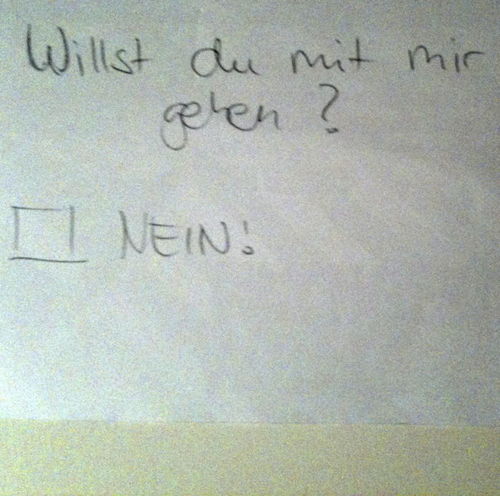 Willst du mit mir
gehen?
NEIN!